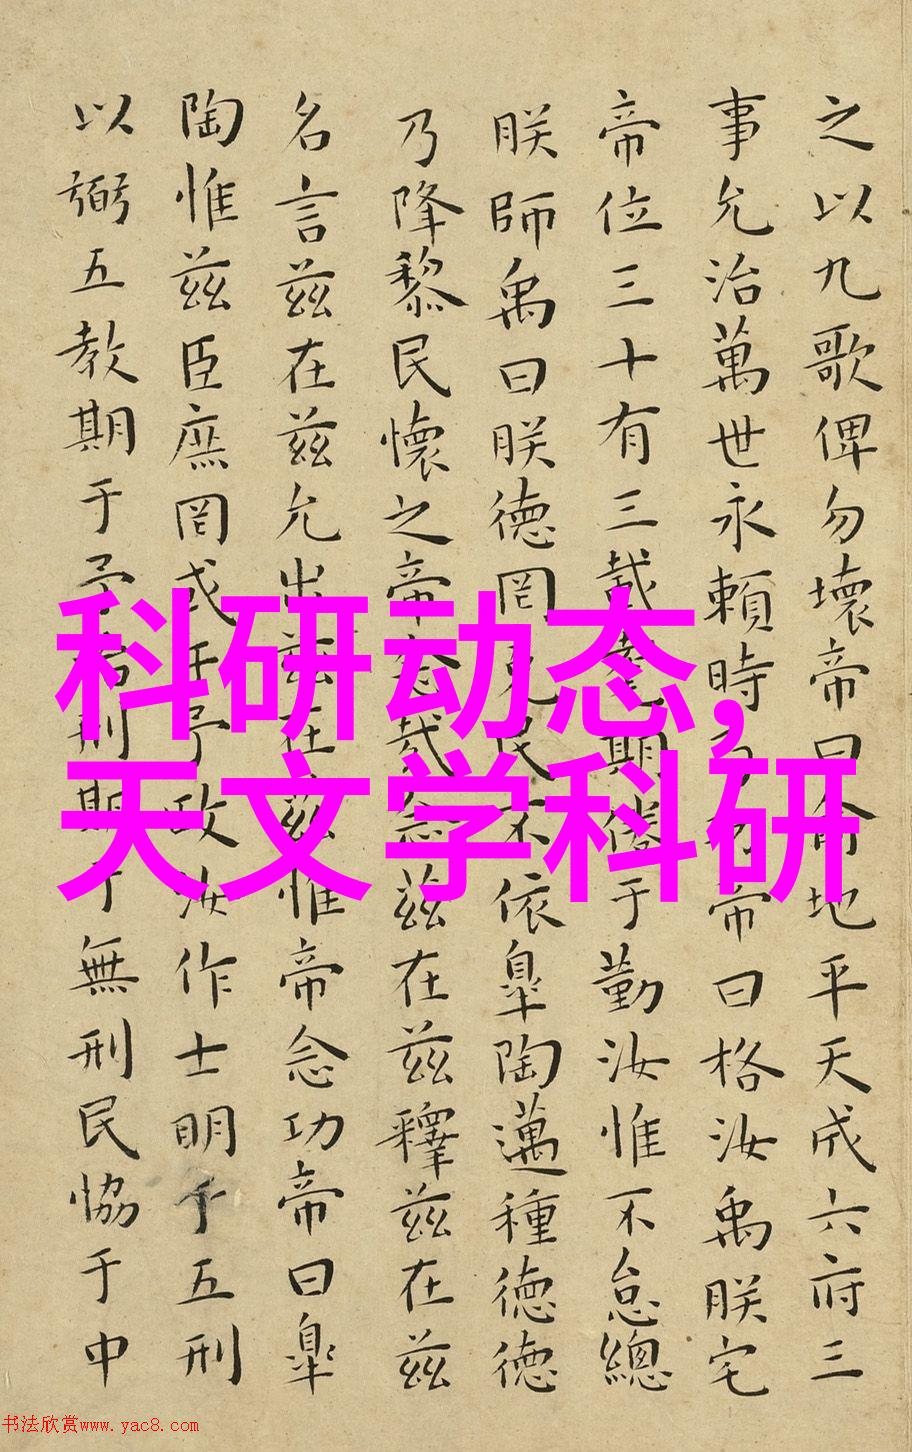 之以九歌俾勿壞帝曰俞地平天成六府三
事允治萬世永賴時乃功帝曰格汝禹朕宅
帝位三十有三載耄期倦于勤汝惟不怠總
朕師禹曰朕德罔克民不依皐陶邁種德德
乃降黎民懷之帝念哉念茲在茲釋茲在茲
名言茲在茲允出茲在茲惟帝念功帝曰皐
陶惟茲臣庶罔或干予政汝作士明于五刑
以弼五教期于予治刑期于無刑民恊于中
科研动态,
天文学科研
书法欣赏www.yac8.com